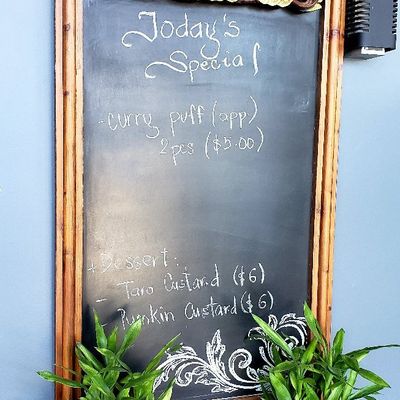 Today's
Special
- curry puff (app)
2 pcs ($5.00)
+ Dessert:
- Taro Custard ($6)
- Pumkin Custard ($6)